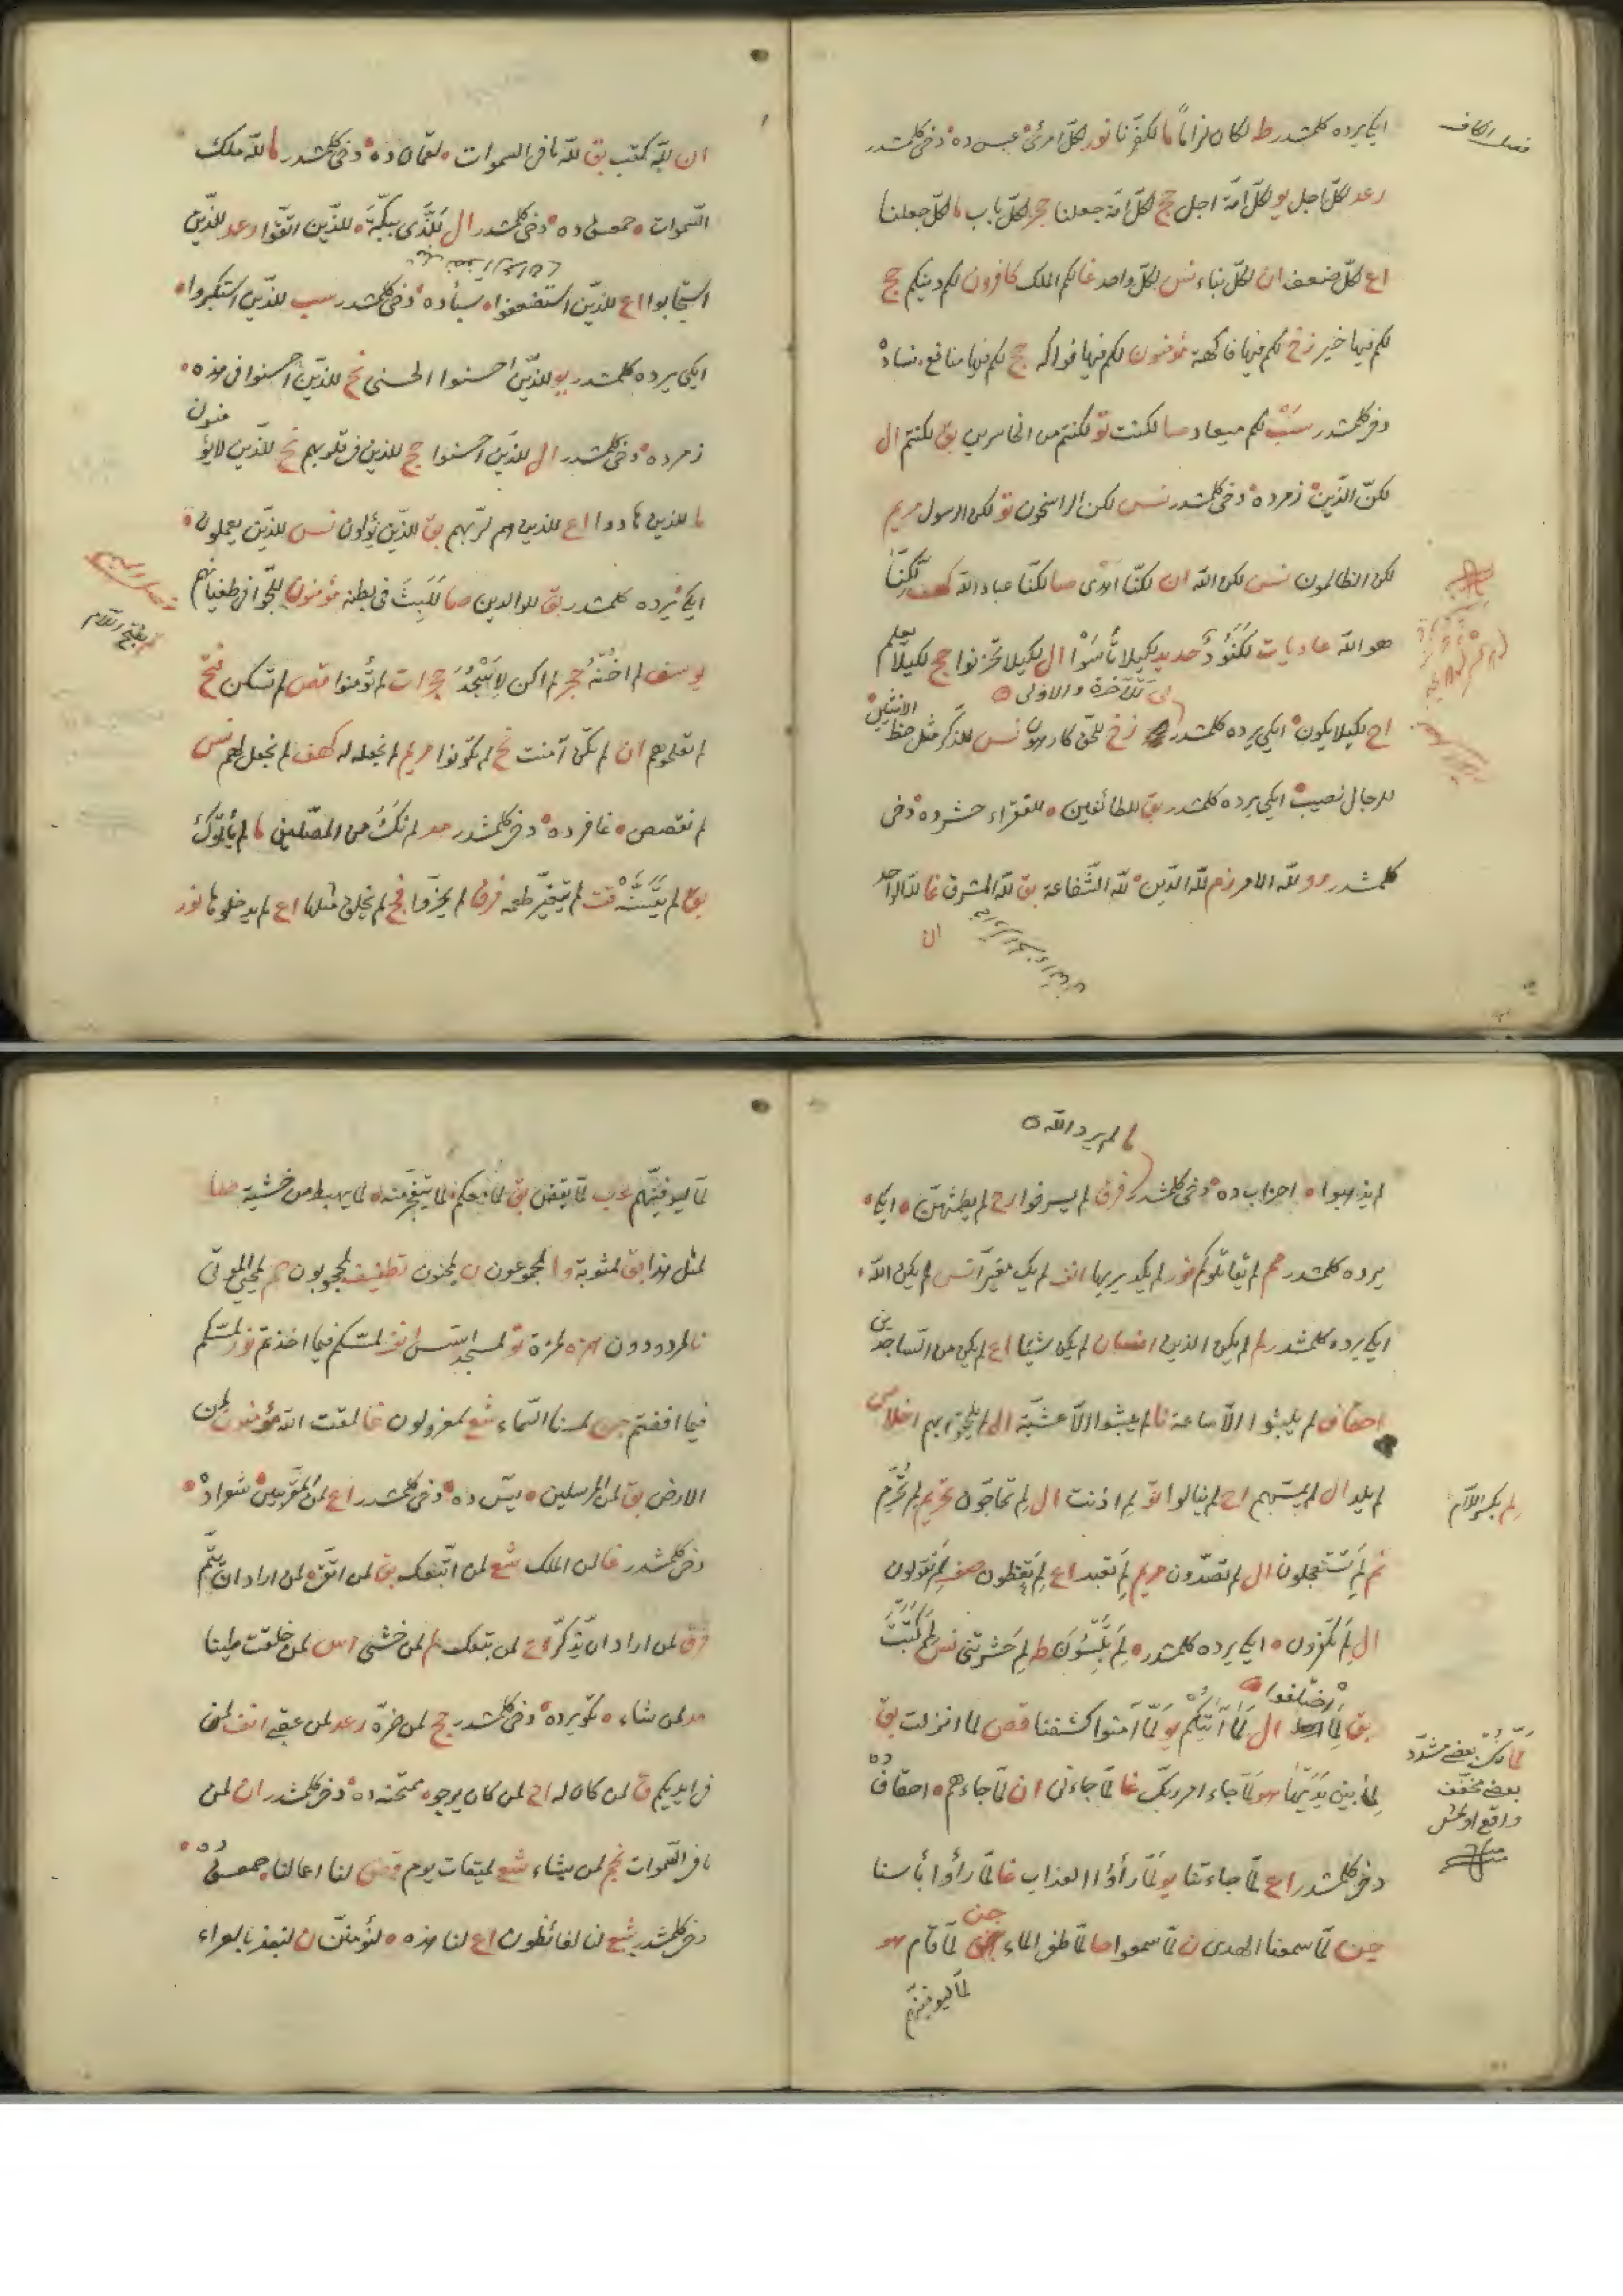 فصل الكاف
ايكى يرده كلمشدر ط لكان لزاما ما لكفرنا نور لكل امرئ عبس ده دخى كلمشدر
رعد لكل اجل يو لكل امة اجل حج لكل امة جعلنا حجر لكل باب ما لكل جعلنا
اع لكل ضعف ان لكل نباء نس لكل واحد غا لكم الملك كافرون لكم دينكم حج
لكم فيها خير زخ لكم فيها فاكهة مؤمنون لكم فيها فواكه حج لكم فيها منافع نساده
دخى كلمشدر سب لكم ميعاد صا لكنت تو لكنتم من الخاسرين بق لكنتم ال
لكن الذين زمرده دخى كلمشدر نس لكن الراسخون تو لكن الرسول مريم
لكن الظالمون نس لكن الله ان لكنا اهدى صا لكنا عباد الله كهف لكنا
هو الله عاديات لكنود حديد لكيلا تأسوا ال لكيلا تحزنوا حج لكيلا يعلم
ليل للآخرة والاولى
اح لكيلا يكون ايكى يرده كلمشدر زخ للحق كارهون نس للذكر مثل حظ الانثيين
للرجال نصيب ايكى يرده كلمشدر بق للطائفين للفقراء حشرده دخى
كلمشدر رو لله الامر زم لله الدين لله الشفاعة بق لله المشرق غا لله الواحد
ان
ان لله كتب بق لله ما فى السموات لقمان ده دخى كلمشدر ما لله ملك
السموات حمعسق ده دخى كلمشدر ال للذى ببكة للذين اتقوا رعد للذين
استجابوا اع للذين استضعفوا سبأده دخى كلمشدر سب للذين استكبروا
ايكى يرده كلمشدر يو للذين احسنوا الحسنى نح للذين احسنوا فى هذه
زمرده دخى كلمشدر ال للذين احسنوا حج للذين فى قلوبهم نح للذين لا يؤمنون
ما للذين هادوا اع للذين هم لربهم بق للذين يؤلون نس للذين يعملون
ايكى يرده كلمشدر بق للوالدين صا للبث فى بطنه مؤمنون للجوا فى طغيانهم
لم بفتح اللام
يوسف لم اخنه حجر لم اكن لاسجد حجرات لم تؤمنوا قص لم تسكن فتح
لم تعلموهم ان لم تكن آمنت نح لم تكونوا مريم لم نجعل له كهف لم نجعل لهم نس
لم نقصص غافرده دخى كلمشدر مد لم نك من المصلين ما لم يأتوك
بق لم يتسنه قت لم يتغير طعمه فرق لم يخروا فج لم يخلق مثلها اع لم يدخلوها نور
ما لم يرد الله
لم يذهبوا احزاب ده دخى كلمشدر فرق لم يسرفوا رح لم يطمثهن ايكى
يرده كلمشدر مم لم يقاتلوكم نور لم يكد يريها انف لم يك مغيرا نس لم يكن الله
ايكى يرده كلمشدر لم لم يكن الذين انسان لم يكن شيئا اع لم يكن من الساجدين
احقاف لم يلبثوا الا ساعة نا لم يلبثوا الا عشية ال لم يلحقوا بهم اخلاص
لم يلد ال لم يمسسهم اح لم ينالوا تو لم اذنت ال لم تحاجون تحريم لم تحرم
لم بكسر اللام
نم لم تستعجلون ال لم تصدون مريم لم تعبد اع لم تعظون صف لم تقولون
ال لم تكفرون ايكى يرده كلمشدر لم تلبسون ط لم حشرتنى نس لم كتبت
بق لما اختلفوا ال لما آتيتكم يو لما آمنوا كشفنا قص لما انزلت بق
لمانك بعضى مشدد
بعضى مخفف
واقع اولمش
لما بين يديها هو لما جاء امر ربك غا لما جاءنى ان لما جاءهم احقاف ده
دخى كلمشدر اع لما جاءتنا يو لما رأوا العذاب غا لما رأوا بأسنا
جن لما سمعنا الهدى ن لما سمعوا حا لما طغى الماء جن لما قام هو
لما ليوفينهم
لما ليوفينهم عب لما يقض بق لما معكم لما يتفجر منه لما يهبط من خشية صا
لمثل هذا بق لمثوبة وا لمجموعون ن لمجنون تطفيف لمحجوبون رم لمحيى الموتى
نا لمردودون همزه لمزة تو لمسجد اسس انف لمسكم فيما اخذتم نور لمسكم
فيما افضتم جن لمسنا السماء شع لمعزولون غا لمقت الله مؤمنون لمن
الارض بق لمن المرسلين يس ده دخى كلمشدر اع لمن المقربين شعراده
دخى كلمشدر غا لمن الملك شع لمن اتبعك بق لمن اتقى لمن اراد ان يتم
فرق لمن اراد ان يذكر اع لمن تبعك لم لمن خشى اس لمن خلقت طينا
مد لمن شاء تكويرده دخى كلمشدر حج لمن ضره رعد لمن عقبى انف لمن
فى ايديكم ق لمن كان له اح لمن كان يرجو ممتحنه ده دخى كلمشدر ان لمن
ما فى السموات نجم لمن يشاء شع لميقات يوم قص لنا اعمالنا حمعسق ده
دخى كلمشدر شع لنا لغائظون اع لنا هذه لنؤمنن ن لنبذ بالعراء